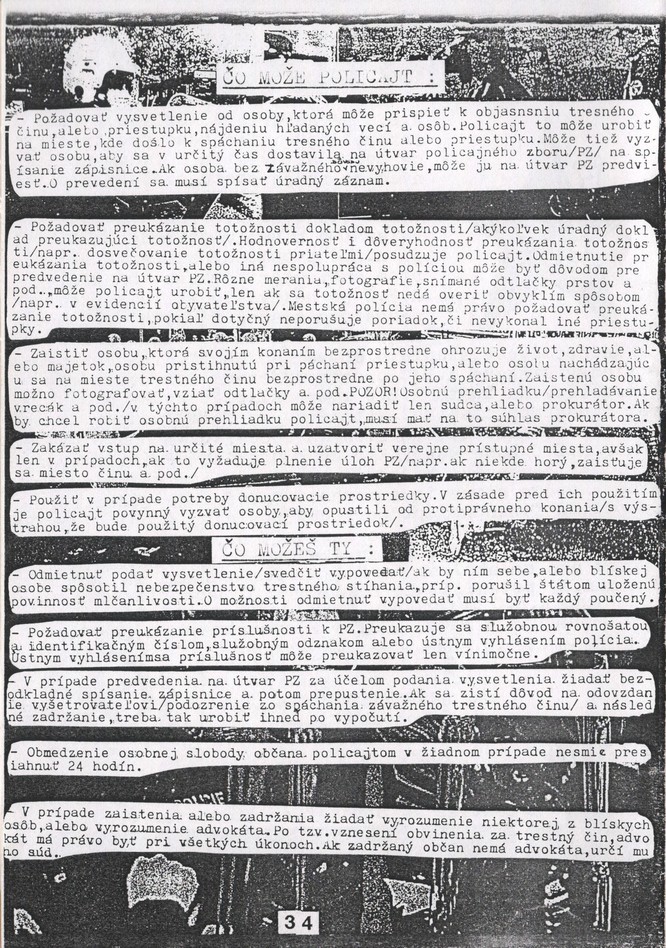 ČO MOŽE POLICAJT :
- Požadovať vysvetlenie od osoby,ktorá môže prispieť k objasnsniu tresného
činu,alebo priestupku,nájdeniu hľadaných vecí a osôb.Policajt to môže urobiť
na mieste,kde došlo k spáchaniu tresného činu alebo priestupku.Môže tiež vyz-
vať osobu,aby sa v určitý čas dostavila na útvar policajného zboru/PZ/ na sp-
ísanie zápisnice.Ak osoba bez závažného dôvodu nevyhovie,môže ju na útvar PZ predvi-
esť.O prevedení sa musí spísať úradný záznam.
- Požadovať preukázanie totožnosti dokladom totožnosti/akýkoľvek úradný dokl
ad preukazujúci totožnosť/.Hodnovernosť i dôveryhodnosť preukázania totožnos
ti/napr. dosvečovanie totožnosti priateľmi/posudzuje policajt.Odmietnutie pr
eukázania totožnosti,alebo iná nespolupráca s políciou môže byť dôvodom pre
predvedenie na útvar PZ.Rôzne merania,fotografie,snímané odtlačky prstov a
pod.,môže policajt urobiť,len ak sa totožnosť nedá overiť obvyklím spôsobom
/napr. v evidencii obyvateľstva/.Mestská polícia nemá právo požadovať preuká-
zanie totožnosti,pokiaľ dotyčný neporušuje poriadok,či nevykonal iné priestu-
pky.
- Zaistiť osobu,ktorá svojím konaním bezprostredne ohrozuje život,zdravie,al-
ebo majetok,osobu pristihnutú pri páchaní priestupku,alebo osobu nachádzajúc
u sa na mieste trestného činu bezprostredne po jeho spáchaní.Zaistenú osobu
možno fotografovať,vziať odtlačky a pod.POZOR!Osobnú prehliadku/prehľadávanie
vrecák a pod./v týchto prípadoch môže nariadiť len sudca,alebo prokurátor.Ak
by chcel robiť osobnú prehliadku policajt,musí mať na to súhlas prokurátora.
- Zakázať vstup na určité miesta a uzatvoriť verejne prístupné miesta,avšak
len v prípadoch,ak to vyžaduje plnenie úloh PZ/napr.ak niekde horý,zaisťuje
sa miesto činu a pod./
- Použiť v prípade potreby donucovacie prostriedky.V zásade pred ich použitím
je policajt povynný vyzvať osoby,aby opustili od protiprávneho konania/s výs-
trahou,že bude použitý donucovací prostriedok/.
ČO MOŽEŠ TY :
- Odmietnuť podať vysvetlenie/svedčiť vypovedať/ak by ním sebe,alebo blískej
osobe spôsobil nebezpečenstvo trestného stíhania,príp. porušil štátom uloženú
povinnosť mlčanlivosti.O možnosti odmietnuť vypovedať musí byť každý poučený.
- Požadovať preukázanie príslušnosti k PZ.Preukazuje sa služobnou rovnošatou
a identifikačným číslom,služobným odznakom alebo ústnym vyhlásením polícia.
Ústnym vyhlásenímsa príslušnosť môže preukazovať len vínimočne.
- V prípade predvedenia na útvar PZ za účelom podania vysvetlenia žiadať bez-
odkladné spísanie zápisnice a potom prepustenie.Ak sa zistí dôvod na odovzdan
ie vyšetrovateľovi/podozrenie zo spáchania závažného trestného činu/ a násled
né zadržanie,treba tak urobiť ihneď po vypočutí.
- Obmedzenie osobnej slobody občana policajtom v žiadnom prípade nesmie pres
iahnuť 24 hodín.
- V prípade zaistenia alebo zadržania žiadať vyrozumenie niektorej z blískych
osôb,alebo vyrozumenie advokáta.Po tzv.vznesení obvinenia za trestný čin,advo
kát má právo byť pri všetkých úkonoch.Ak zadržaný občan nemá advokáta,určí mu
ho súd.
34